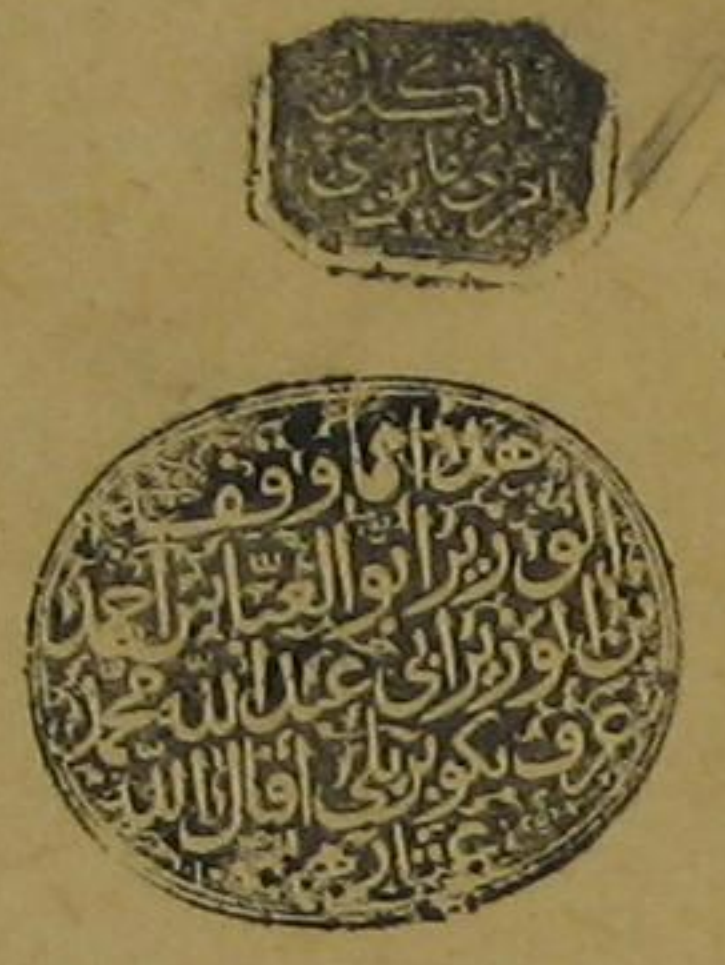 لكل
امرئ ما نوى
هذا ما وقف
الوزير ابو العباس احمد
بن الوزير ابي عبد الله محمد
عرف بكوبريلي أقال الله
عثارهما